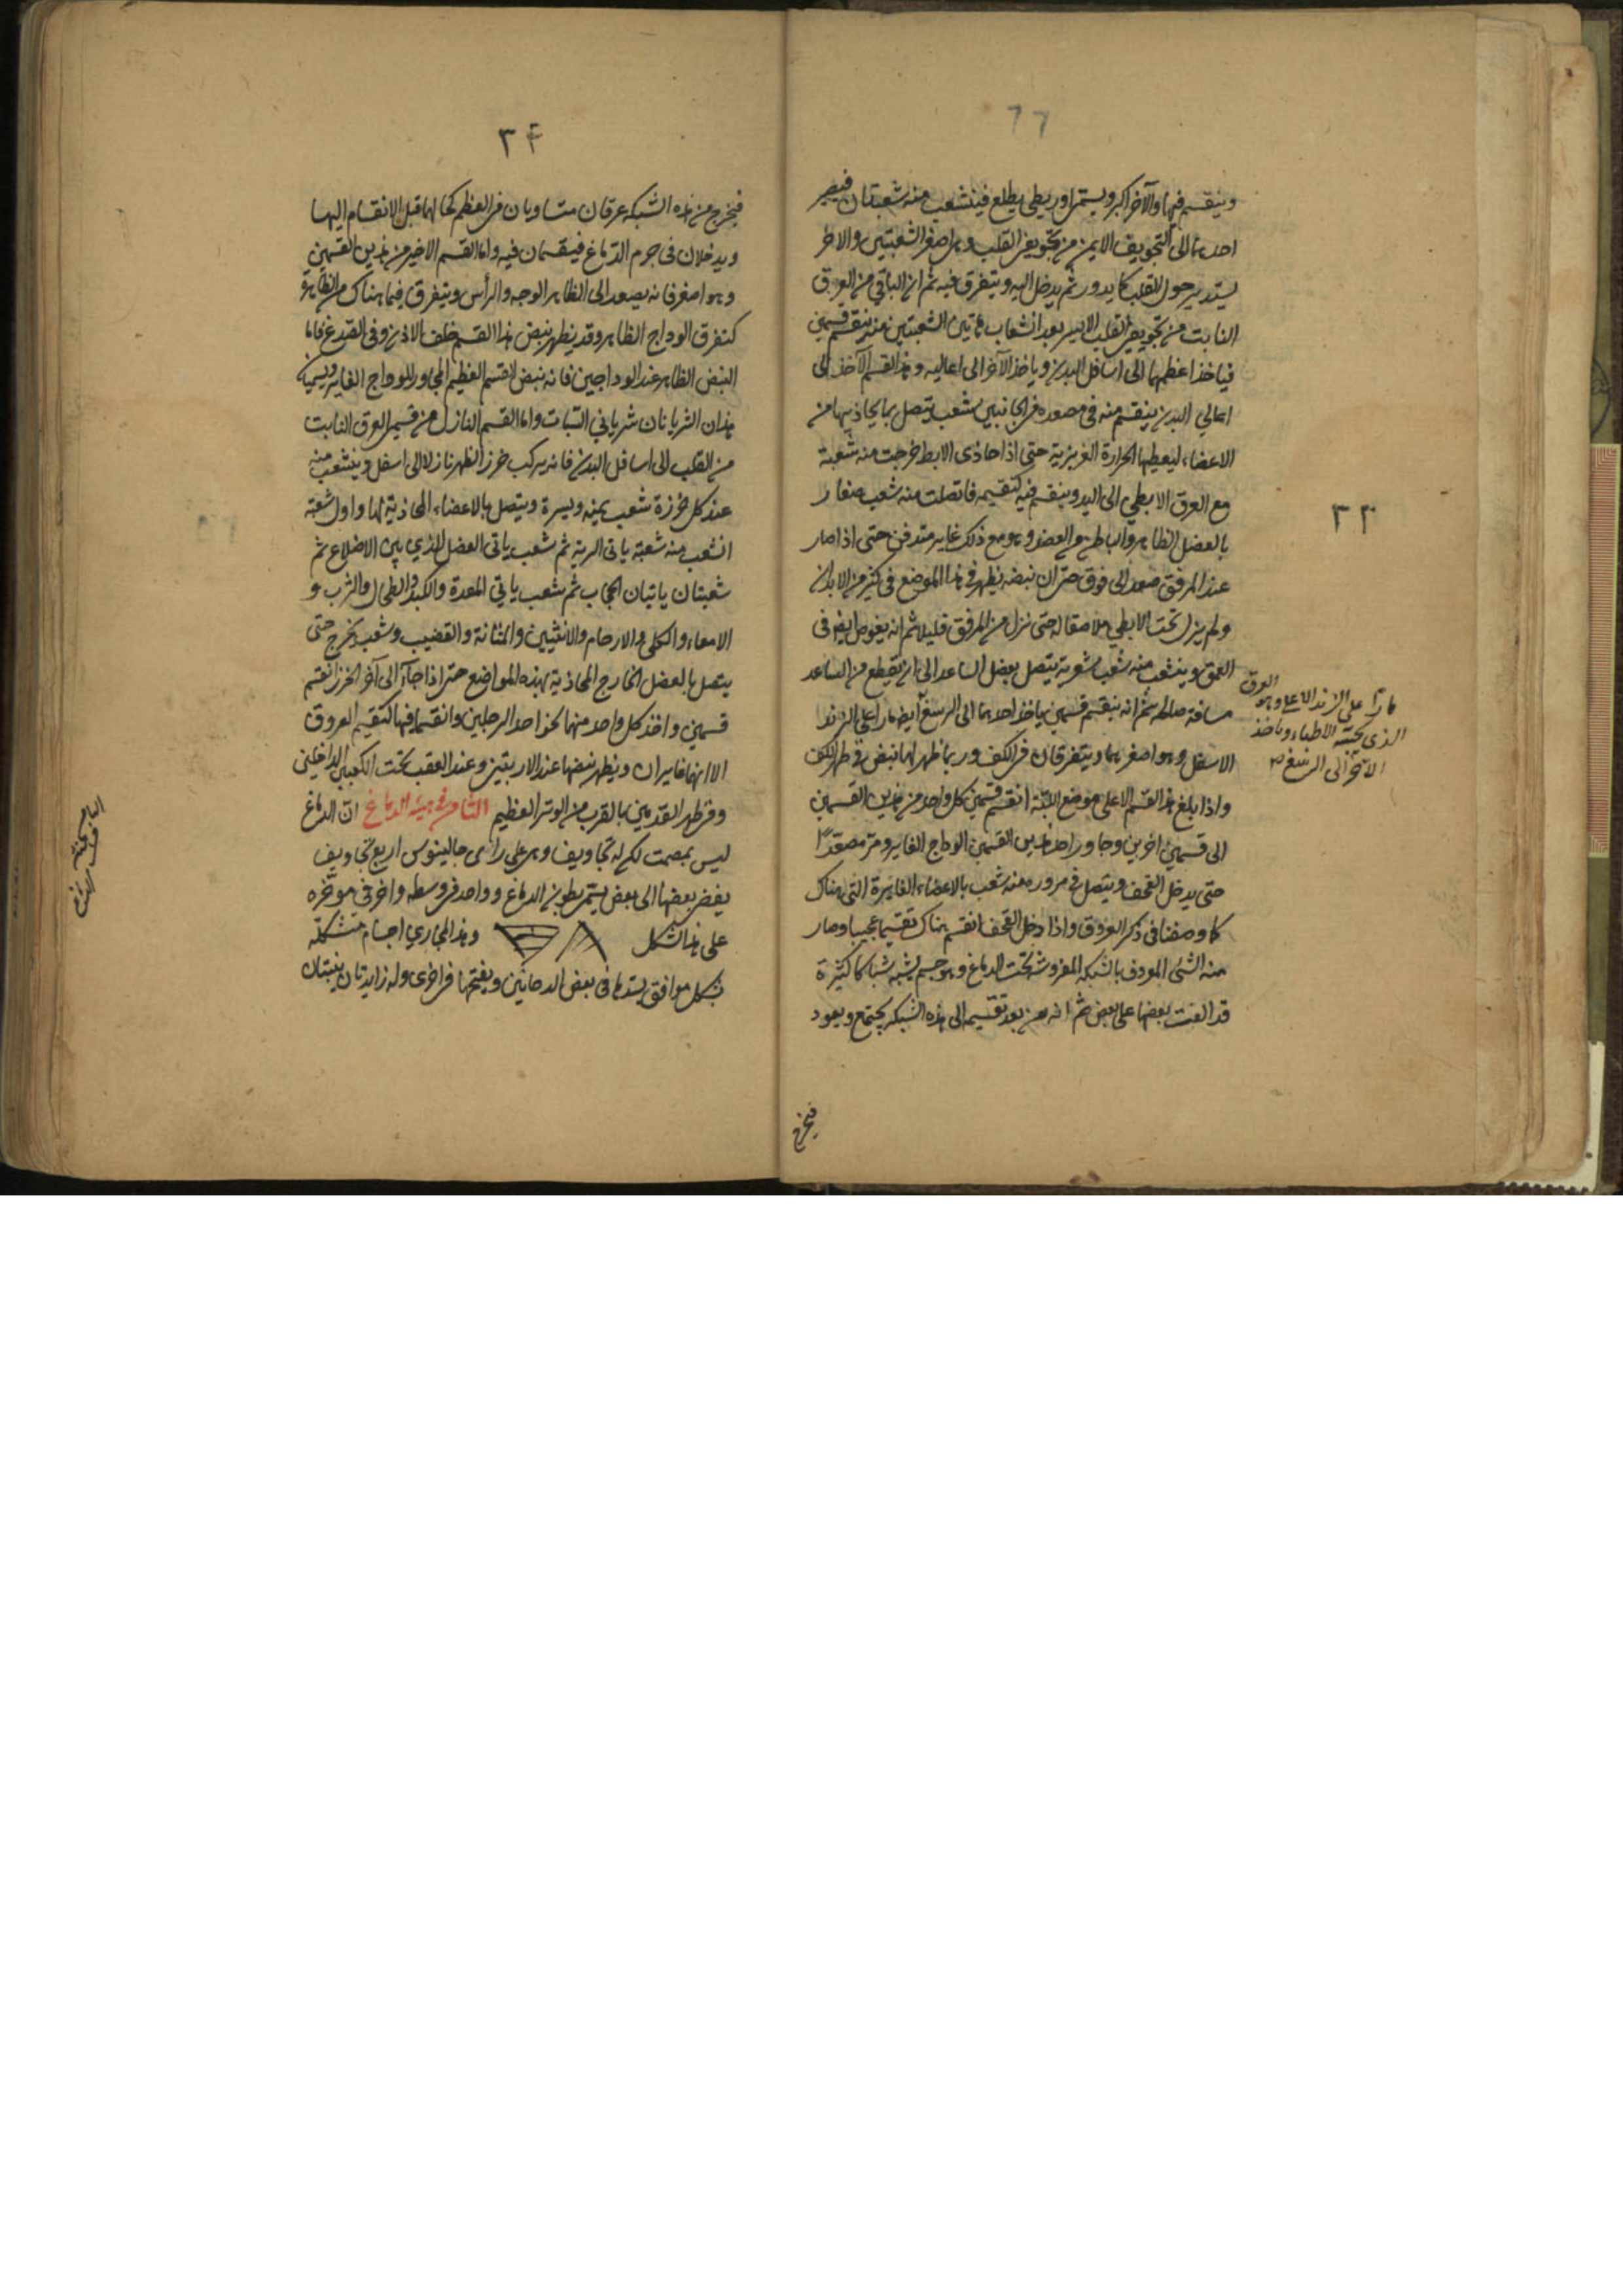 ٦٦
وينقسم فيها والآخر اكبر ويستمر اوريطي يطلع فينشعب منه شعبتان فيصير
احدهما الى التجويف الايمن من تجويفي القلب وهي اصغر الشعبتين والاخر
يستدير حول القلب كما يدور ثم يدخل اليه ويتفرق فيه ثم ان الباقي من العرق
النابت من تجويف القلب الايسر بعد انشعاب هاتين الشعبتين منه ينقسم قسمين
فياخذ اعظمهما الى اسافل البدن وياخذ الآخر الى اعاليه وهذا القسم الآخذ الى
اعالي البدن ينقسم منه في مصعده في الجانبين شعب يتصل بما يحاذيها من
الاعضاء ليعطيها الحرارة الغريزية حتى اذا حاذى الابط خرجت منه شعبة
مع العرق الابطي الى اليد وينقسم فيه كتقسيمه فاتصلت منه شعب صغار
بالعضل الظاهر والباطن من العضد وهو مع ذلك غاير مندفن حتى اذا صار
عند المرفق صعد الى فوق حتى ان نبضه يظهر في هذا الموضع في كثير من الابدان
ولم يزل تحت الابطي ملاصقا له حتى نزل من المرفق قليلا ثم انه يغوص ايضا في
العمق وينشعب منه شعب شعرية يتصل بعضل الساعد الى ان يقطع من الساعد
مسافة صالحة ثم انه ينقسم قسمين ياخذ احدهما الى الرسغ ايضا مارا على الزند
الاسفل وهو اصغرهما ويتفرقان في الكف وربما ظهر لهما نبض في ظهر الكف
واذا بلغ هذا القسم الاعلى موضع اللبّة انقسم قسمين كل واحد من هذين القسمين
الى قسمين اخرين وجاور احد هذين القسمين الوداج الغاير ومرّ مصعّدًا
حتى يدخل القحف ويتصل في مروره منه شعب بالاعضاء الغايرة التي هناك
كما وصفنا في ذكر العروق واذا دخل القحف انقسم هناك تقسيما عجيبا وصار
منه الشئ المعروف بالشبكة المفروشة تحت الدماغ وهو جسم يشبه شباكا كثيرة
قد القيت بعضها على بعض ثم انه من بعد تقسيمه الى هذه الشبكة يجتمع ويعود
فيخرج
٣٣
مارّا على الزند الاعلى وهو العرق
الذى يجسّه الاطباء وياخذ
الآخر الى الرسغ
٣٤
فيخرج من هذه الشبكة عرقان متساويان في العظم كحالهما قبل الانقسام اليها
ويدخلان في جرم الدّماغ فينقسمان فيه واما القسم الاخير من هذين القسمين
وهو اصغر فانه يصعد الى الظاهر الوجه والرأس ويتفرق فيما هناك من الظاهرة
كتفرق الوداج الظاهر وقد يظهر نبض هذا القسم خلف الاذن وفي الصدغ فاما
النبض الظاهر عند الوداجين فانه نبض القسم العظيم المجاور للوداج الغاير ويسميان
هذان الشريانان شرياني السّبات واما القسم النازل من قسمي العرق النابت
من القلب الى اسافل البدن فانه يركب خرز الظهر نازلا الى اسفل وينشعب منه
عند كل خرزة شعب يمنة ويسرة ويتصل بالاعضاء المحاذية لها واول شعبة
انشعب منه شعبة ياتى الرية ثم شعب ياتى العضل الذي بين الاضلاع ثم
شعبتان ياتيان الحجاب ثم شعب ياتي المعدة والكبد والطحال والثرب و
الامعاء والكلى والارحام والانثيين والمثانة والقضيب وشعب يخرج حتى
يتصل بالعضل الخارج المحاذية بهذه المواضع حتى اذا جاءَ الى آخر الخرز انقسم
قسمين واخذ كل واحد منهما نحو احد الرجلين وانقسما فيها كتقسيم العروق
الا انهما غايران ويظهر نبضها عند الاربتين وعند العقب تحت الكعبين الداخلين
وفي ظهر القدمين بالقرب من الوتر العظيم الثامن في هيئة الدماغ انّ الدماغ
ليس بمصمت لكن له تجاويف وهي على رأى جالينوس اربع تجاويف
يفضى بعضها الى بعض يستمر بطون الدماغ وواحد في وسطه واخر في موخره
على هذا الشكل وهذا المجاري اجسام متشكلّة
بشكل موافق يسدها في بعض الاحايين ويفتحها في اخرى وله زايدتان ينبتان